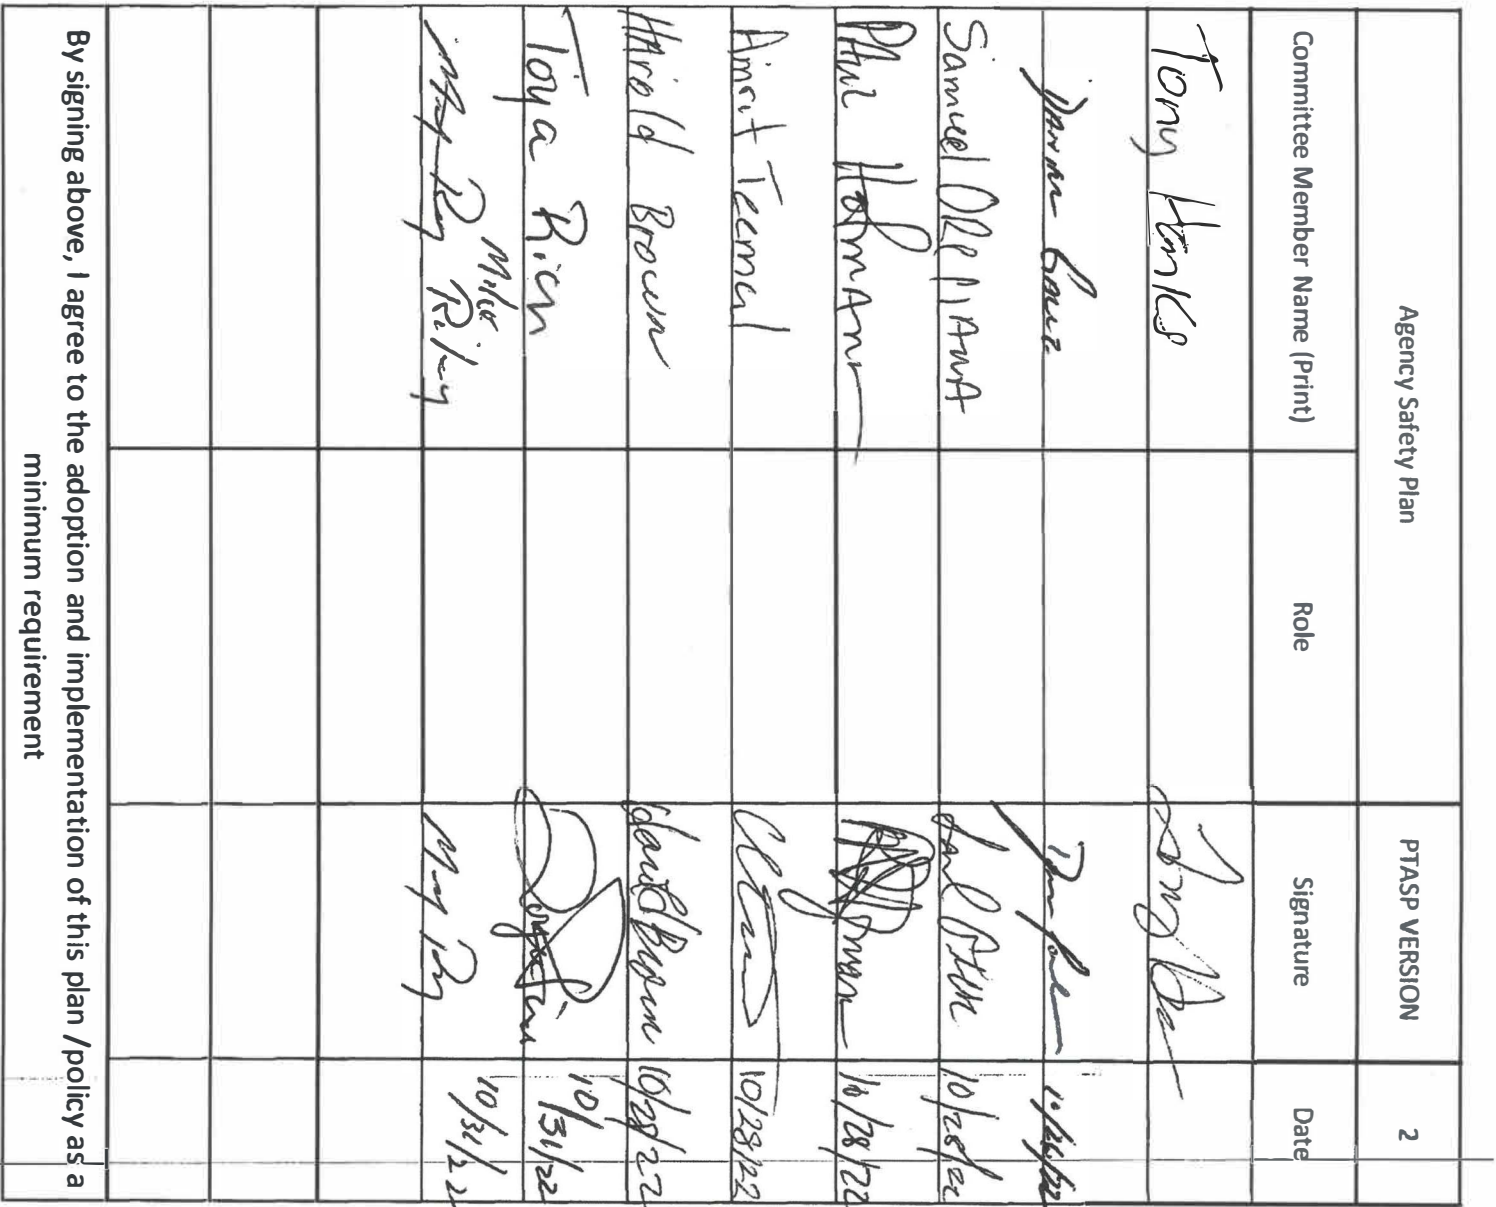 Agency Safety Plan PTASP VERSION 2
Committee Member Name (Print) Role Signature Date
Tony Hanks
10/26/22
Samuel 10/28/22
Phil Holman 10/28/22
Amrit Teemul 10/28/22
Harold Brown Harold Brown 10/28/22
Toya Rich 10/31/22
Mike Riley 10/31/22
By signing above, I agree to the adoption and implementation of this plan /policy as a
minimum requirement